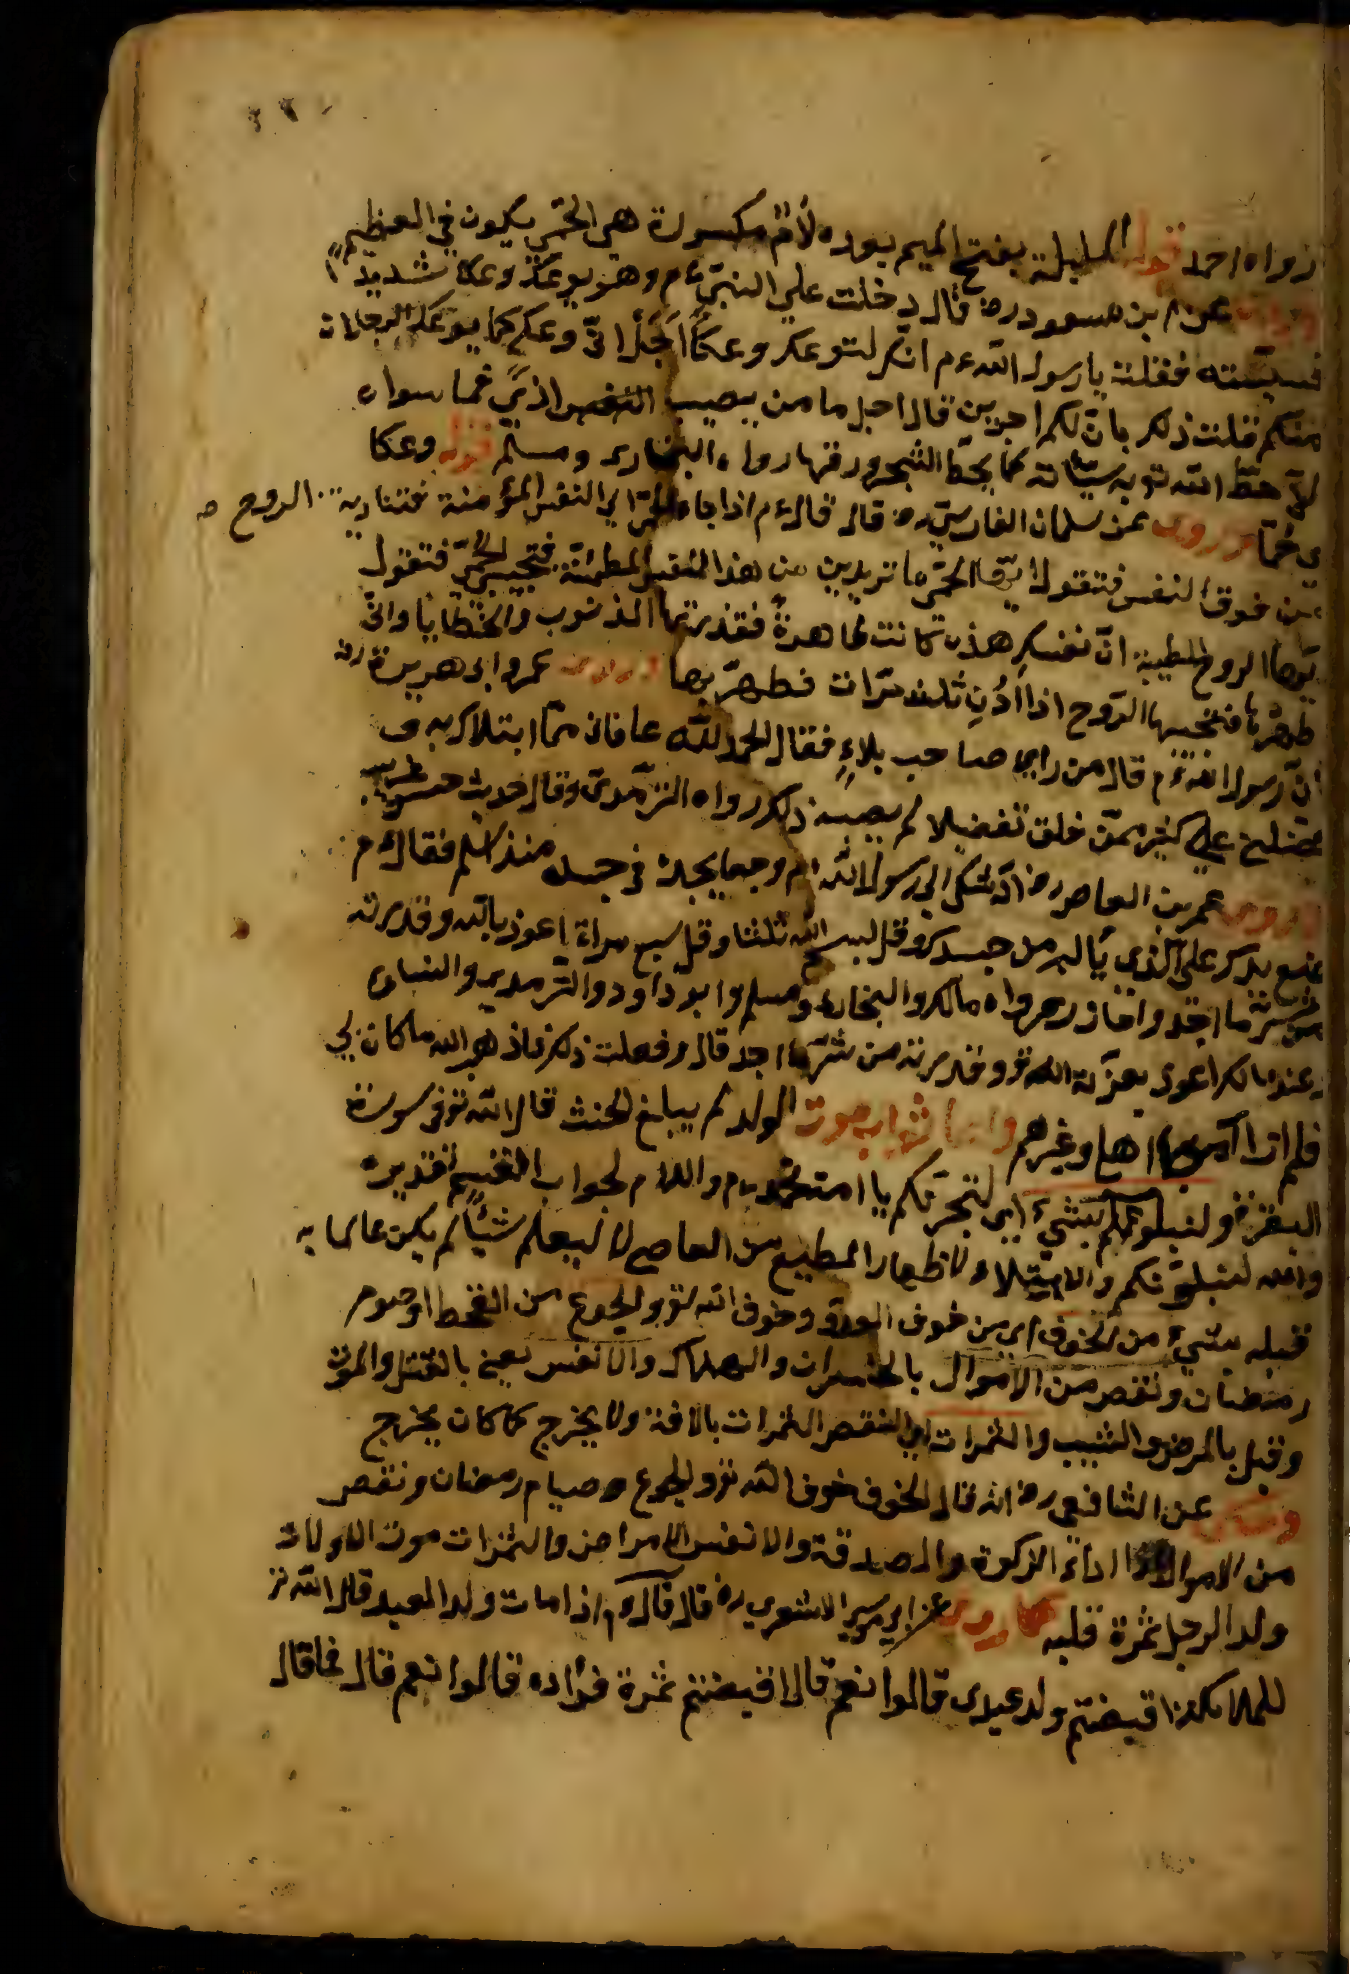 رواه احمد قوله المليلة بفتح الميم بعده لام مكسورة هي الحمى يكون في العظم
عن ابن مسعود رض قال دخلت على النبي ءم وهو يوعك وعكا شديدا
فمسسته فقلت يا رسول الله ءم انك لتوعك وعكا اجل انى وعك كما يوعك الرجلان
منكم قلت ذلك بان لك اجرين قال اجل ما من يصيب اذى فما سواه
الا حط الله تع به سيئاته كما يحط الشجر ورقها رواه البخارى ومسلم قوله وعكا
اى حما وروى عن سلمان الفارسي رض قال قال ءم اذا جاء الحمى الى النفس المؤمنة فتناديه الروح
من فوق النفس فتقول ايتها الحمى ما تريدين من هذا النفس المطمئنة فتجيب الحمى فتقول
ايها الروح الطيبة ان نفسك هذه كانت طاهرة فقذرتها الذنوب والخطايا وانى
طهرها فتجيبها الروح اذا ادن ثلث مرات فطهريها وروى عمر وابو هريرة رض
ان رسول الله ءم قال من راى صاحب بلاء فقال الحمد لله عافانى مما ابتلاك به و
فضلنى على كثير ممن خلق تفضيلا لم يصبه ذلك رواه الترمذى وقال حديث حسن غريب
وروى عمر بن العاص رض انه شكى الى رسول الله ءم وجعا يجده في جسده منذ اسلم فقال ءم
ضع يدك على الذي يألم من جسدك وقل بسم الله ثلثا وقل سبع مراة اعوذ بالله وقدرته
من شر ما اجد واحاذر رواه مالك والبخارى ومسلم وابو داود والترمذى والنسائى
وعند مالك اعوذ بعزة الله تع وقدرته من شر ما اجد قال ففعلت ذلك فاذهب الله ما كان بي
فلم ازل آمر بها اهلى وغيرهم واما ثواب موت الولد لم يبلغ الحنث قال الله تع فى سورة
البقرة ولنبلونكم بشيء اى لنختبرنكم يا امت محمد ءم واللام لجواب القسم تقديره
والله لنبلونكم والابتلاء لاظهار المطيع من العاصى لا ليعلم شيئا لم يكن عالما به
قبله بشيء من الخوف اى من خوف العدو وخوف الله تع والجوع من القحط او صوم
رمضان ونقص من الاموال بالخسران والهلاك والانفس يعنى بالقتل والموت
وقيل بالمرض والشيب والثمرات اى النقص الثمرات بالافة ولا يخرج كما كان يخرج
وحكى عن الشافعى رض انه قال الخوف خوف الله تع والجوع صيام رمضان ونقص
من الاموال اداء الزكوة والصدقة والانفس الامراض والثمرات موت الاولاد
ولد الرجل ثمرة قلبه كما روى عن ابى موسى الاشعرى رض قال قال ءم اذا مات ولد العبد قال الله تع
للملائكة اقبضتم ولد عبدى قالوا نعم قال اقبضتم ثمرة فؤاده قالوا نعم قال فما قال